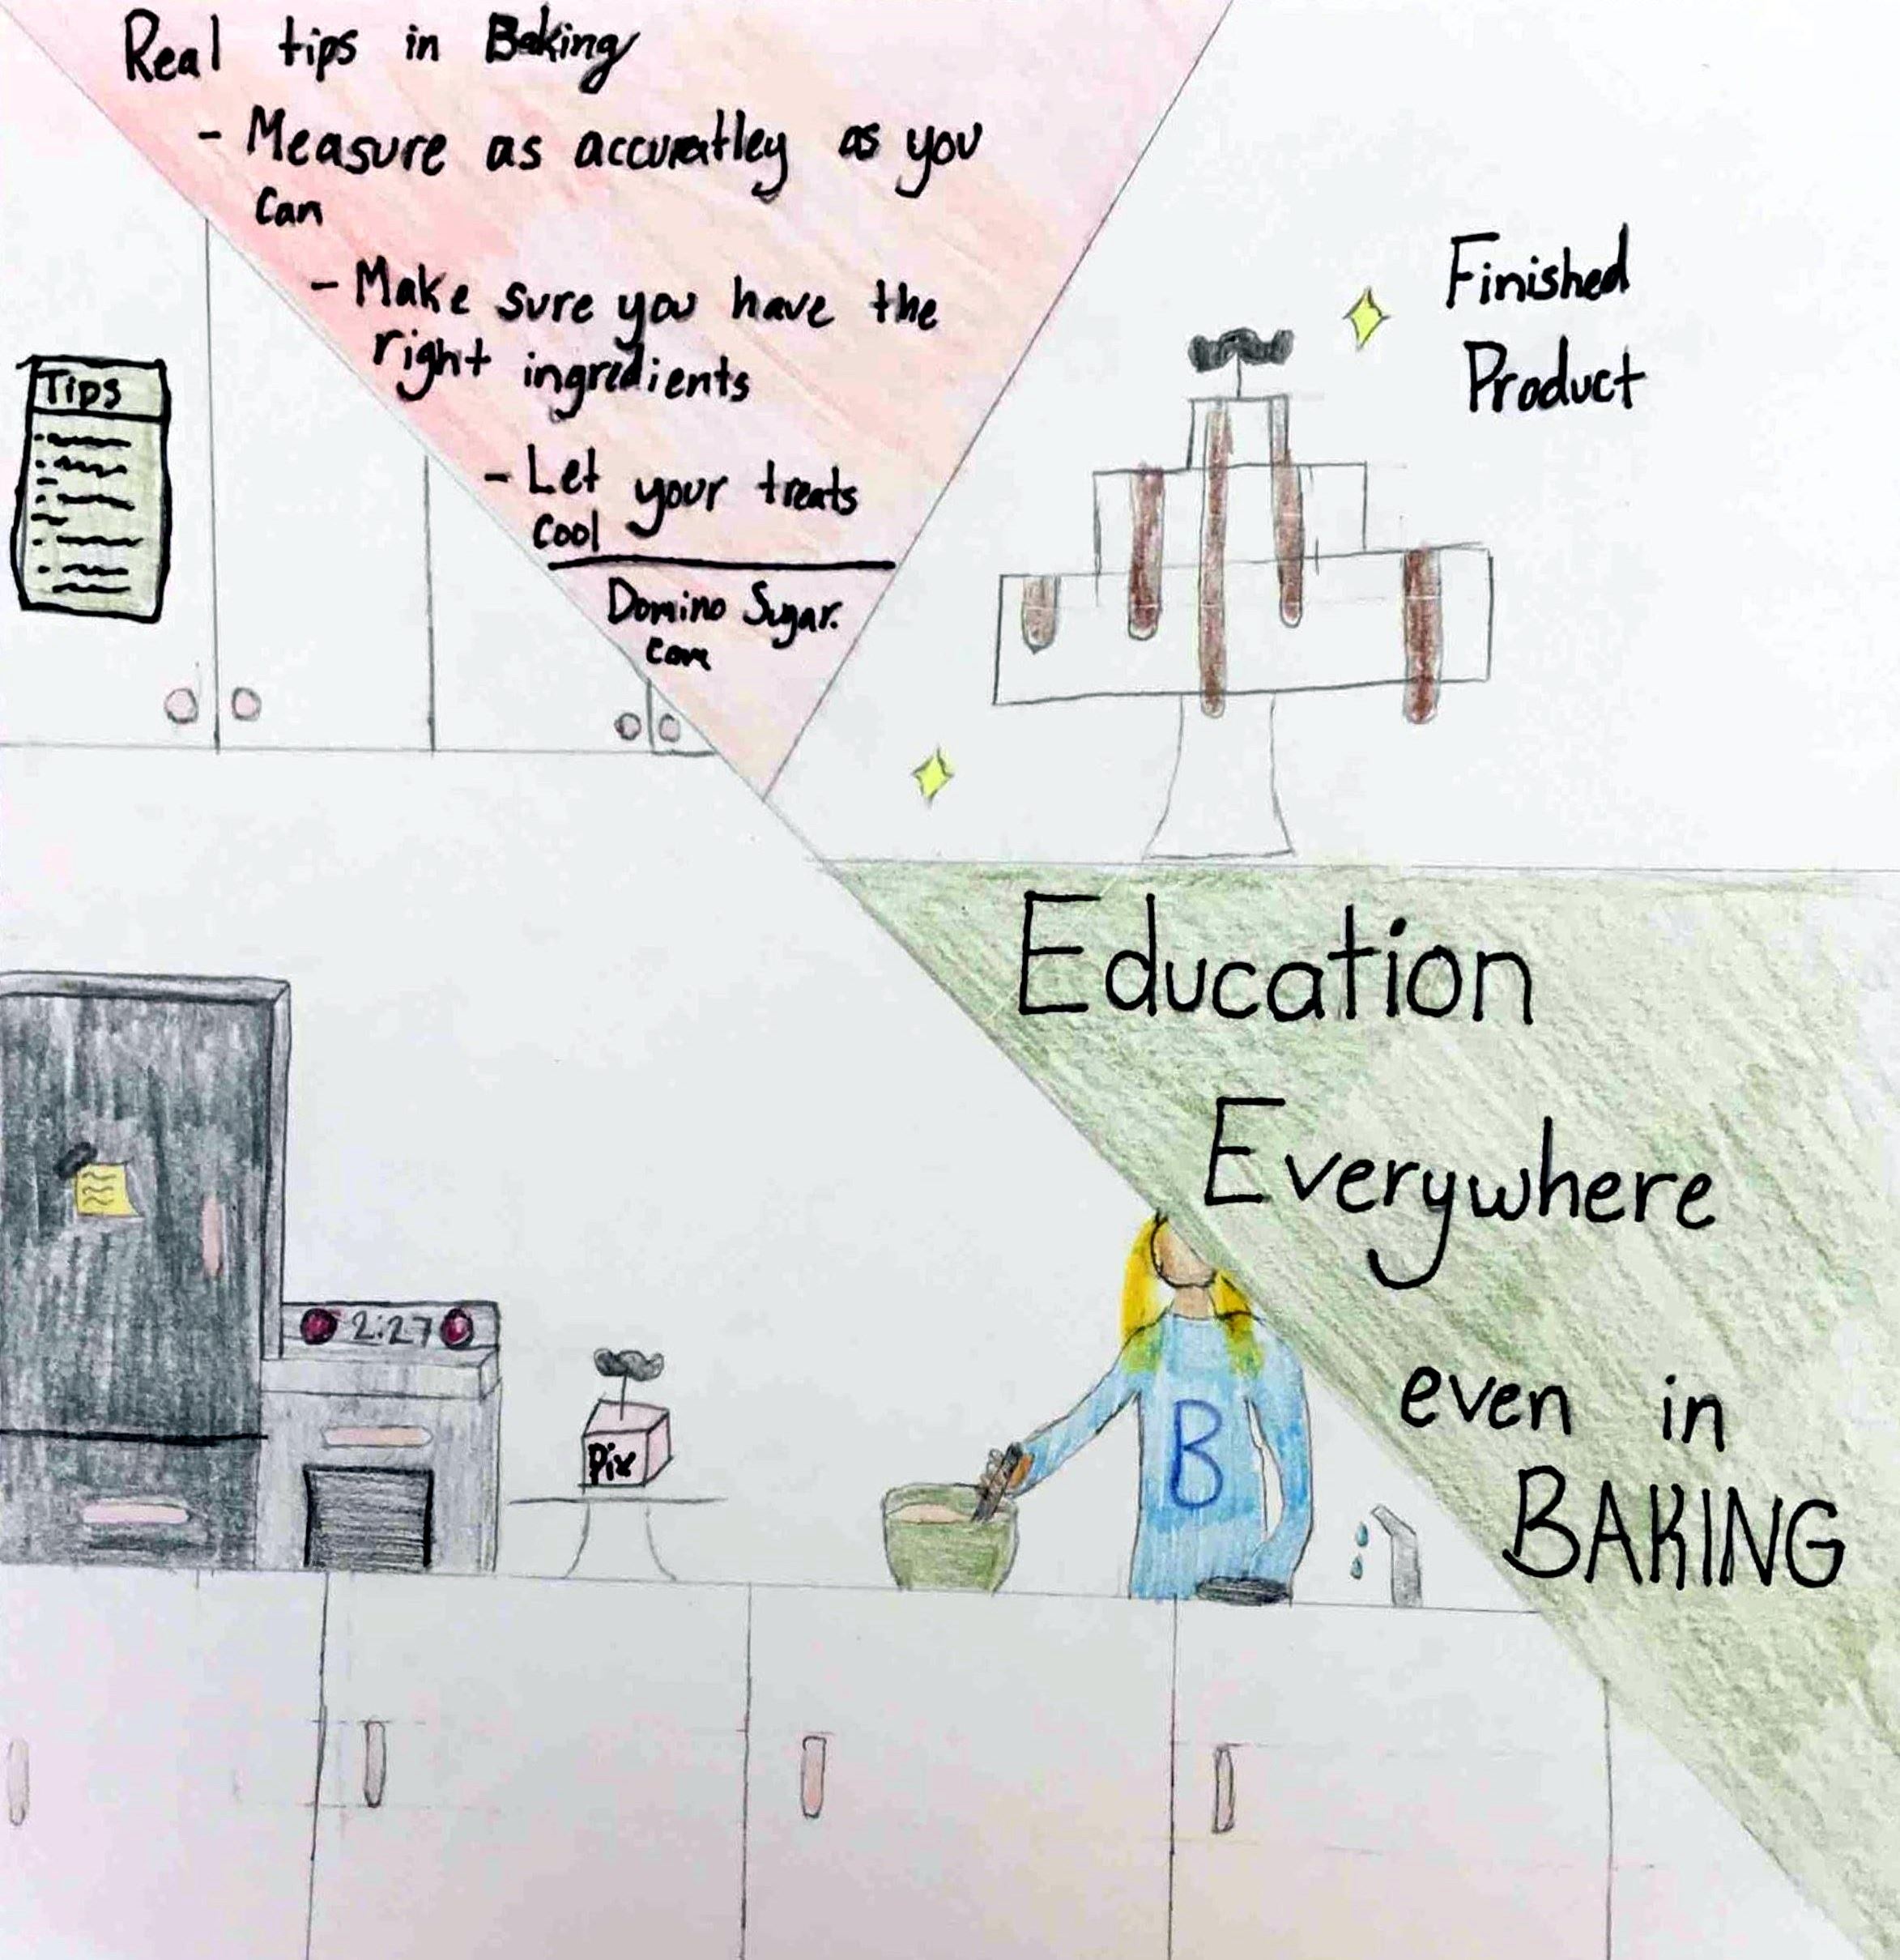 Real tips in Baking
- Measure as accuratley as you
can
- Make sure you have the
right ingredients
- Let your treats
cool
Domino Sugar.
com
Finished
Product
Tips
Education
Everywhere
even in
BAKING
2:27
Pix
B